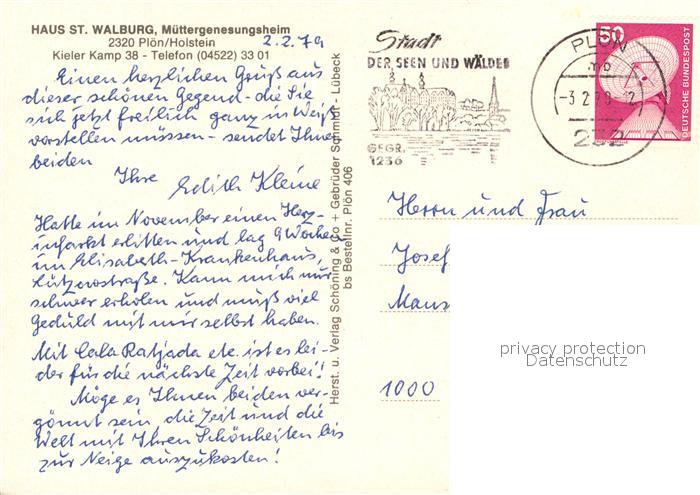 HAUS ST. WALBURG, Müttergenesungsheim
2320 Plön/Holstein
Kieler Kamp 38 - Telefon (04522) 33 01
2.2.79
Einen herzlichen Gruß aus
dieser schönen Gegend - die Sie
sich jetzt freilich ganz in Weiß
vorstellen müssen - sendet Ihnen
beiden
Ihre
Edith Kleine
Hatte im November einen Herz-
infarkt erlitten und lag 9 Wochen
im Elisabeth-Krankenhaus,
Lützowstraße. Kann mich nur
schwer erholen und muß viel
Geduld mit mir selbst haben.
Mit Cala Ratjada etc. ist es lei-
der für die nächste Zeit vorbei!
Möge es Ihnen beiden ver-
gönnt sein, die Zeit und die
Welt mit Ihren Schönheiten bis
zur Neige auszukosten!
Herst. u. Verlag Schöning & Co + Gebrüder Schmidt - Lübeck
bs Bestellnr. Plön 406
Stadt
DER SEEN UND WÄLDER
GEGR.
1236
PLÖN
mb
-3.2.79-2
232
50
DEUTSCHE BUNDESPOST
Herrn und Frau
Josef
Maus
1000
privacy protection
Datenschutz